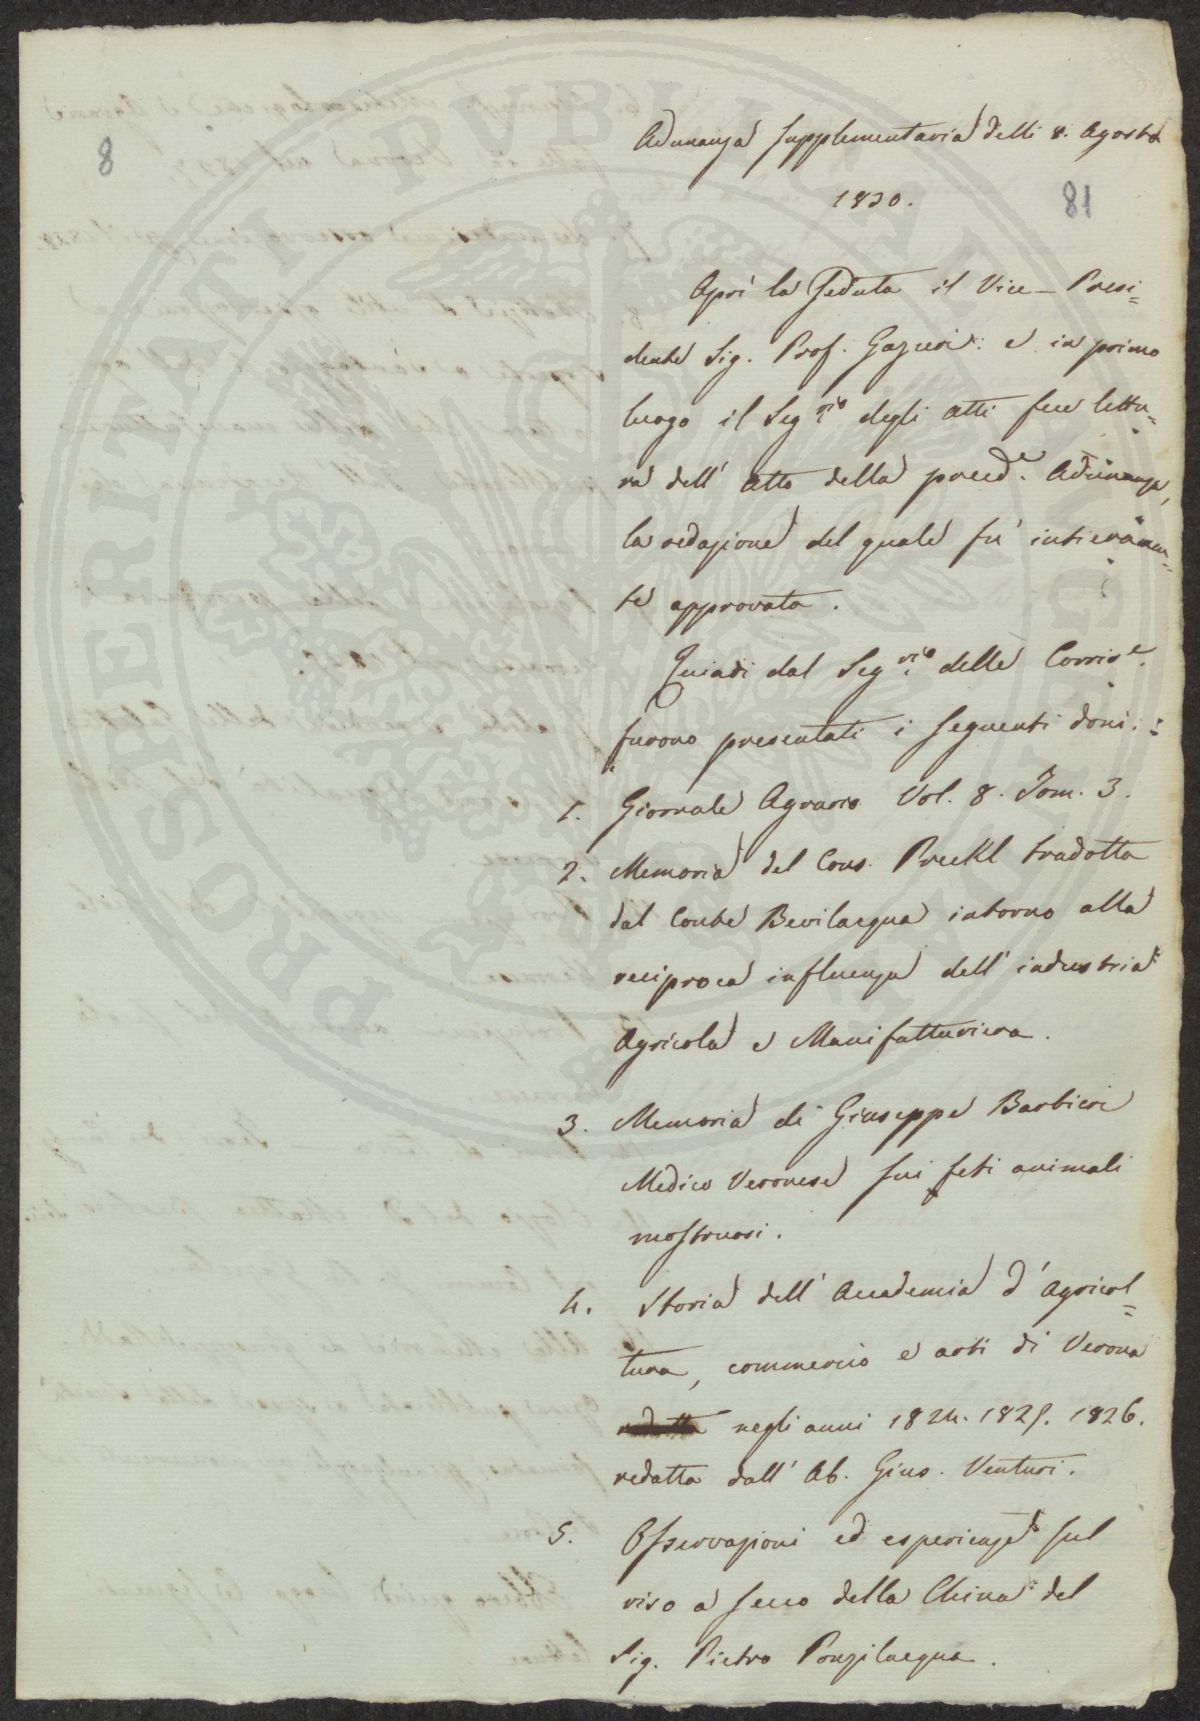 8
Adunanza supplementaria delli 8. Agosto
1830.
81
Aprì la Seduta il Vice-Presi=
dente Sig. Prof. Gazzeri: e in primo
luogo il Seg.rio degli atti fece lettu=
ra dell' atto della preced.e Adunanza,
la redazione del quale fu' intieramen=
te approvata.
Quindi dal Seg.rio delle Corris.e
furono presentati i seguenti doni:
1. Giornale Agrario Vol. 8. Tom. 3.
2. Memoria del Cons. Preckl tradotta
dal Conte Bevilacqua intorno alla
reciproca influenza dell' industria
Agricola e Manifatturiera.
3. Memoria di Giuseppe Barbieri
Medico Veronese sui feti animali
mostruosi.
4. Storia dell' Accademia d' Agricol=
tura, commercio e arti di Verona
redatta negli anni 1824. 1825. 1826.
redatta dall' Ab. Gius. Venturi.
5. Osservazioni ed esperienze sul
riso a secco della China del
Sig. Pietro Ponzilacqua.
PROSPERITATI PUBLICAE AUGENDAE